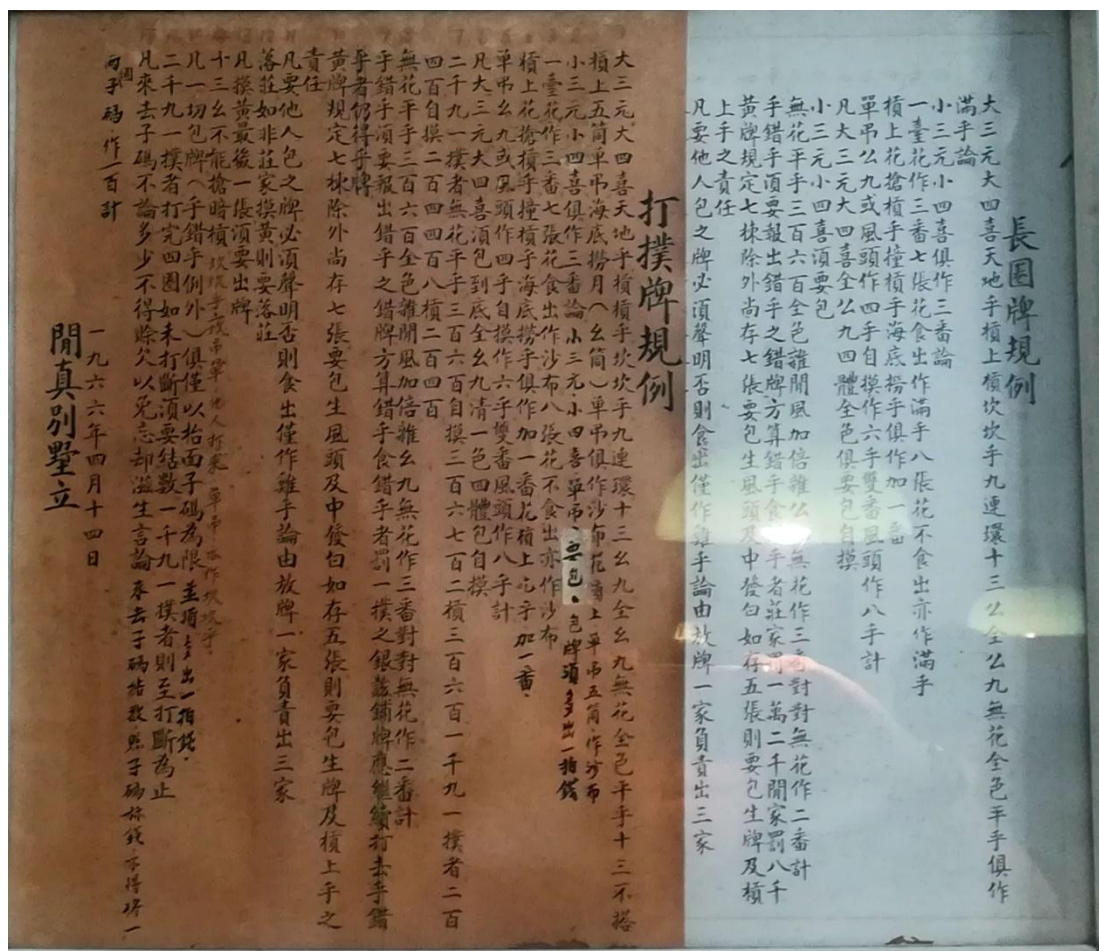 長圍牌規例
大三元大四喜天地乎槓上槓坎坎乎九連環十三幺全幺九無花全色平乎俱作
滿乎論
小三元小四喜俱作三番論
一臺花作三番七張花食出作滿乎八張花不食出亦作滿乎
槓上花搶槓乎撞槓乎海底撈乎俱作加一番
單吊幺九或風頭作四乎自摸作六乎雙番風頭作八乎計
凡大三元大四喜全幺九四體全色俱要包自摸
小三元小四喜須要包
無花平乎三百六百全色雜開風加倍雜幺九無花作三番對對無花作二番計
手錯乎須要報出錯乎之錯牌方算錯乎食錯乎者莊家罰一萬二千閒家罰八千
黃牌規定七棟除外尚存七張要包生風頭及中發白如存五張則要包生牌及槓
上乎之責任
凡要他人包之牌必須聲明否則食出僅作雞乎論由放牌一家負責出三家
打撲牌規例
大三元大四喜天地乎槓槓乎坎坎乎九連環十三幺九全幺九無花全色平乎十三不搭
槓上五筒單吊海底撈月（幺筒）單吊俱作沙布花槓上單吊五筒作沙布
小三元小四喜俱作三番論小三元小四喜單吊要包包牌須多出一拍錢
一臺花作三番七張花食出作沙布八張花不食出亦作沙布
槓上花搶槓乎撞槓乎海底撈乎俱作加一番花槓上吃乎加一番
單吊幺九或風頭作四乎自摸作六乎雙番風頭作八乎計
凡大三元大四喜須包到底全幺九清一色四體包自摸
二千九一撲者無花平乎三百六百自摸三百六七百二槓三百六百一千九一撲者二百
四百自摸二百四四百八槓二百四百
無花平乎三百六百全色雜開風加倍雜幺九無花作三番對對無花作二番計
手錯乎須要報出錯乎之錯牌方算錯乎食錯乎者罰一撲之銀
鋪牌應繼續打去乎錯
乎者仍得乎牌
黃牌規定七棟除外尚存七張要包生風頭及中發白如存五張則要包生牌及槓上乎之
責任
凡要他人包之牌必須聲明否則食出僅作雞乎論由放牌一家負責出三家
落莊如非莊家摸黃則要落莊
凡摸黃最後一張須要出牌
十三幺不能搶暗槓
凡一切包牌（乎錯乎例外）俱僅以枱面子碼為限並須多出一拍錢
二千九一撲者打完四圈如未打斷須要結數一千九一撲者則至打斷為止
凡來去子碼不論多少不得賒欠以免忘却滋生言論來去子碼結數照子碼標錢不得將一
両子碼作一百計
一九六六年四月十四日
閒真別墅立